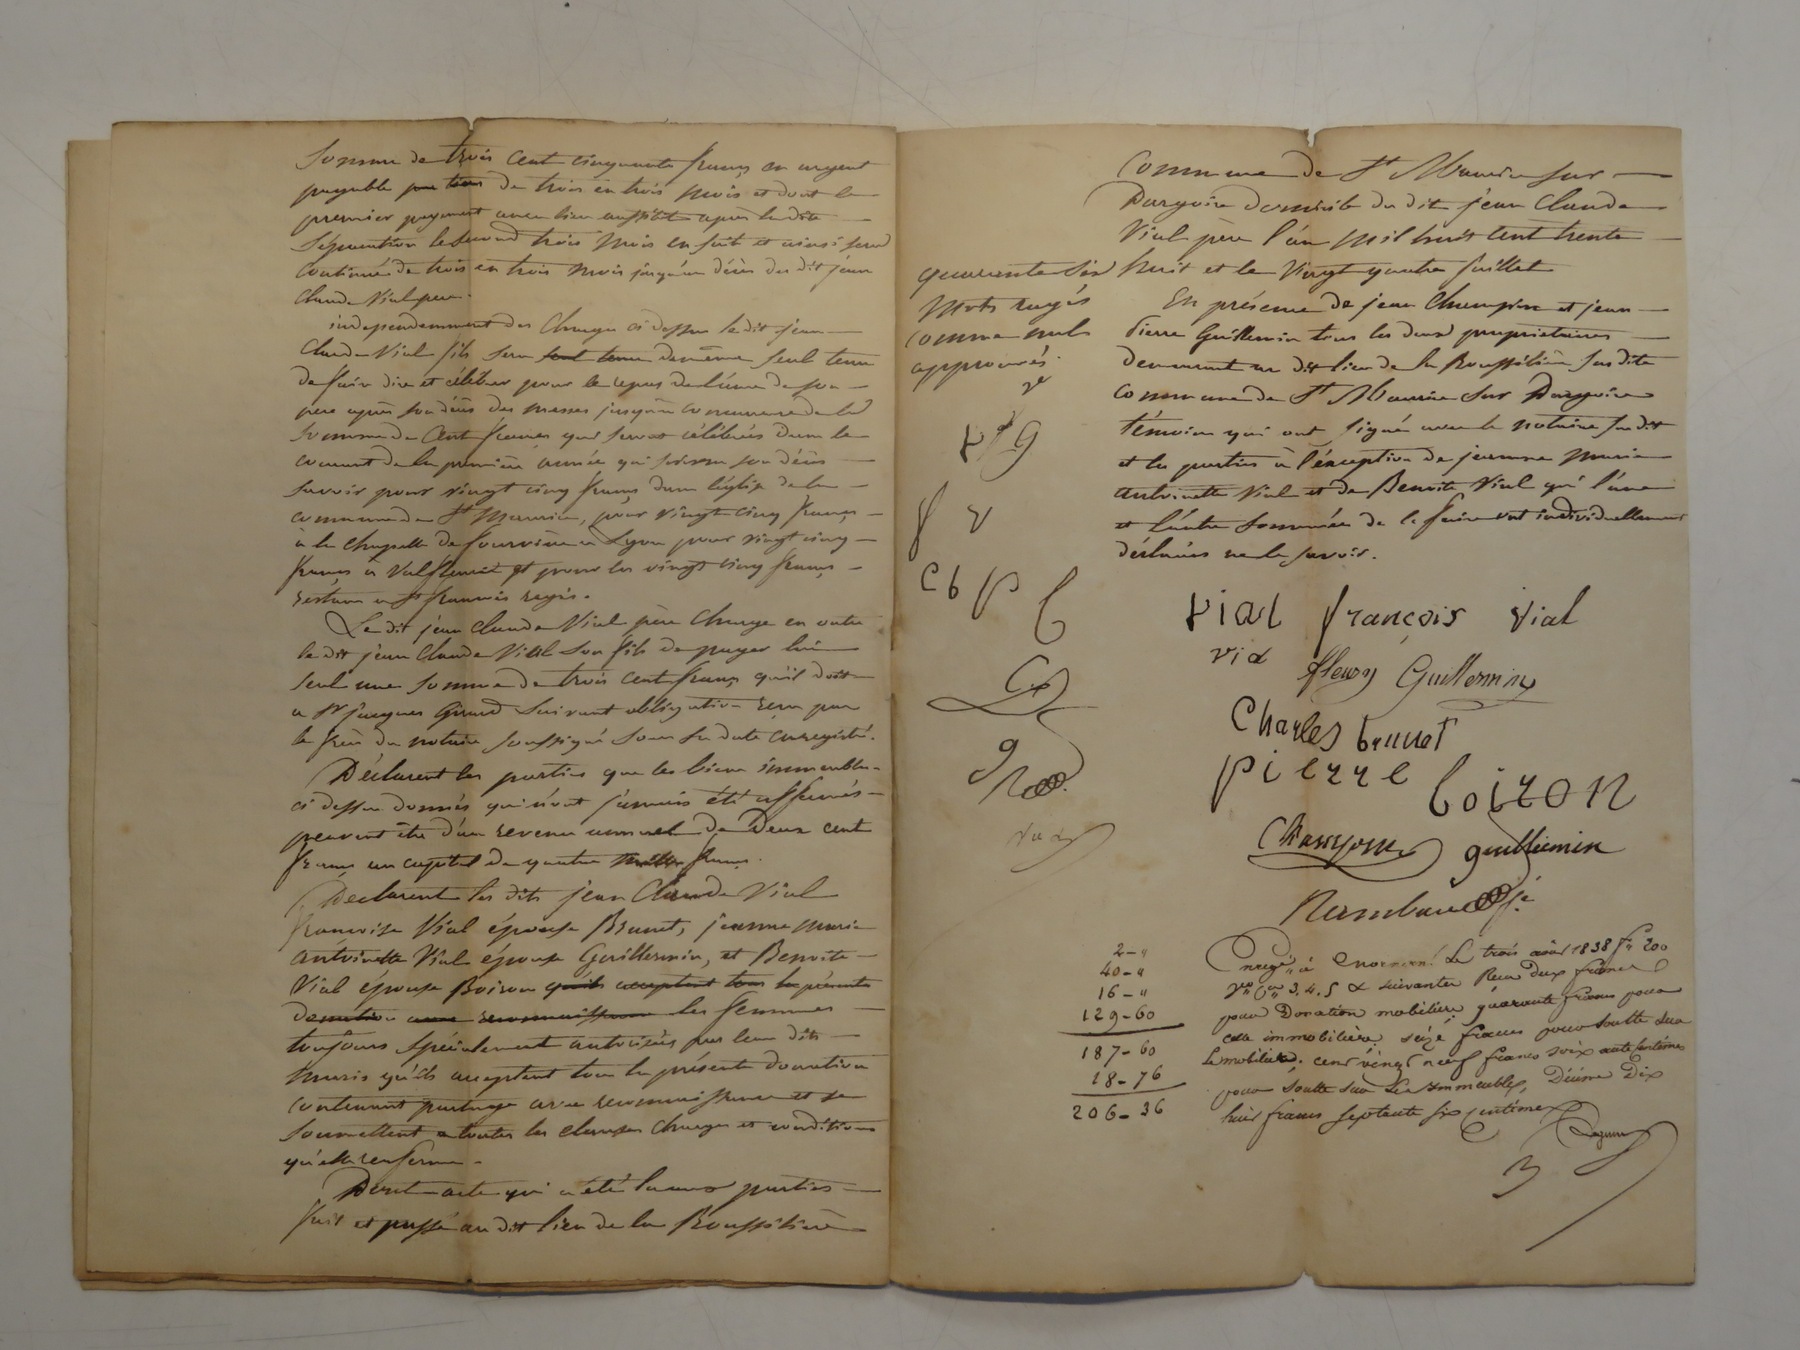 Somme de trois cent cinquante francs en argent
payable par tiers de trois en trois mois et dont le
premier payement aura lieu aussitôt après la dite
séparation le second trois mois en suite et ainsi sera
continué de trois en trois mois jusqu'au décès du dit jean
Claude Vial pere.
indépendamment des Charges ci dessus le dit jean
Claude Vial fils sera seul tenu de même seul tenu
de faire dire et célébrer pour le repos de l'âme de son
pere après son décès des messes jusqu'à concurrence de la
somme de Cent francs qui seront célébrées dans le
courant de la première année qui suivra son décès
savoir pour vingt cinq francs dans l'église de la
commune de St Maurice, pour vingt cinq francs
à la chapelle de fourvière a Lyon pour vingt cinq
francs à Valfleurie et pour les vingt cinq francs
restans a St françois regis.
Le dit jean Claude Vial père Charge en outre
le dit jean Claude Vial son fils de payer lui
seul une somme de trois cent francs qu'il doit
a Sr jacques Girard suivant obligation reçu par
le frère du notaire soussigné sous sa date enregistré.
Déclarent les parties que les biens immeubles
ci dessus donnés qui n'ont jamais été affermés
peuvent être d'un revenu annuel de Deux cent
francs un capital de quatre mille francs.
Déclarent les dits jean Claude Vial
françoise Vial épouse Brunet, jeanne marie
antoinette Vial épouse Guillermin, et Benoite
Vial épouse Boiron qu'ils acceptent tous la présente
donation avec reconnaissance les femmes
toujours spécialement autorisées par leur dits
maris qu'ils acceptent tous la présente donation
contenant partage avec reconnaissance et se
soumettent a toutes les clauses Charges et conditions
qu'elle renferme.
Dont acte qui a été lu aux parties
fait et passé au dit lieu de la Roussilière
Commune de St Maurice sur
Dargoire domicile du dit jean Claude
Vial père l'an mil huit cent trente
huit et le Vingt quatre juillet
En présence de jean Champion et jean
Pierre Guillermin tous les deux propriétaires
demeurant au dit lieu de la Roussilière susdite
commune de St Maurice sur Dargoire
témoins qui ont signé avec le notaire susdit
et les parties à l'exception de jeanne marie
antoinette Vial et de Benoite Vial qui l'une
et l'autre sommées de le faire ont individuellement
déclarés ne le savoir.
quarante six
mots rayés
comme nuls
approuvés.
f v
cb p b
vial françois vial
vial fleury Guillermin
Charles brunet
pierre boiron
Champion guillermin
Rambaud
2-"
40-"
16-"
129-60
187-60
18-76
206-36
Enregé à Mornant Le trois août 1838 fo 200
vo Ces 3. 4. 5 & suivantes Reçu deux francs
pour Donation mobilière quarante francs pour
celle immobilière, seize francs pour soulte sur
le mobilier, cent vingt neuf francs soixante centimes
pour soulte sur les immeubles, Décime Dix
huit francs septante six centimes